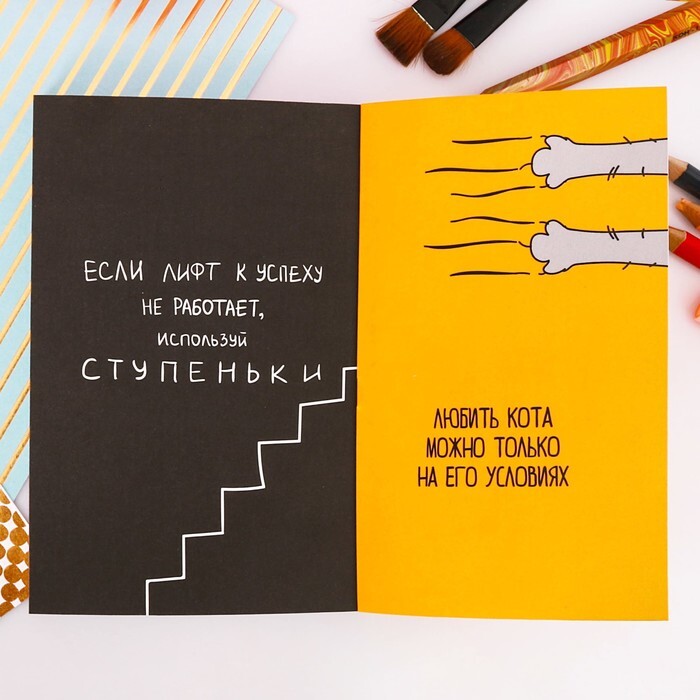 ЕСЛИ ЛИФТ К УСПЕХУ
НЕ РАБОТАЕТ,
ИСПОЛЬЗУЙ
СТУПЕНЬКИ
ЛЮБИТЬ КОТА
МОЖНО ТОЛЬКО
НА ЕГО УСЛОВИЯХ